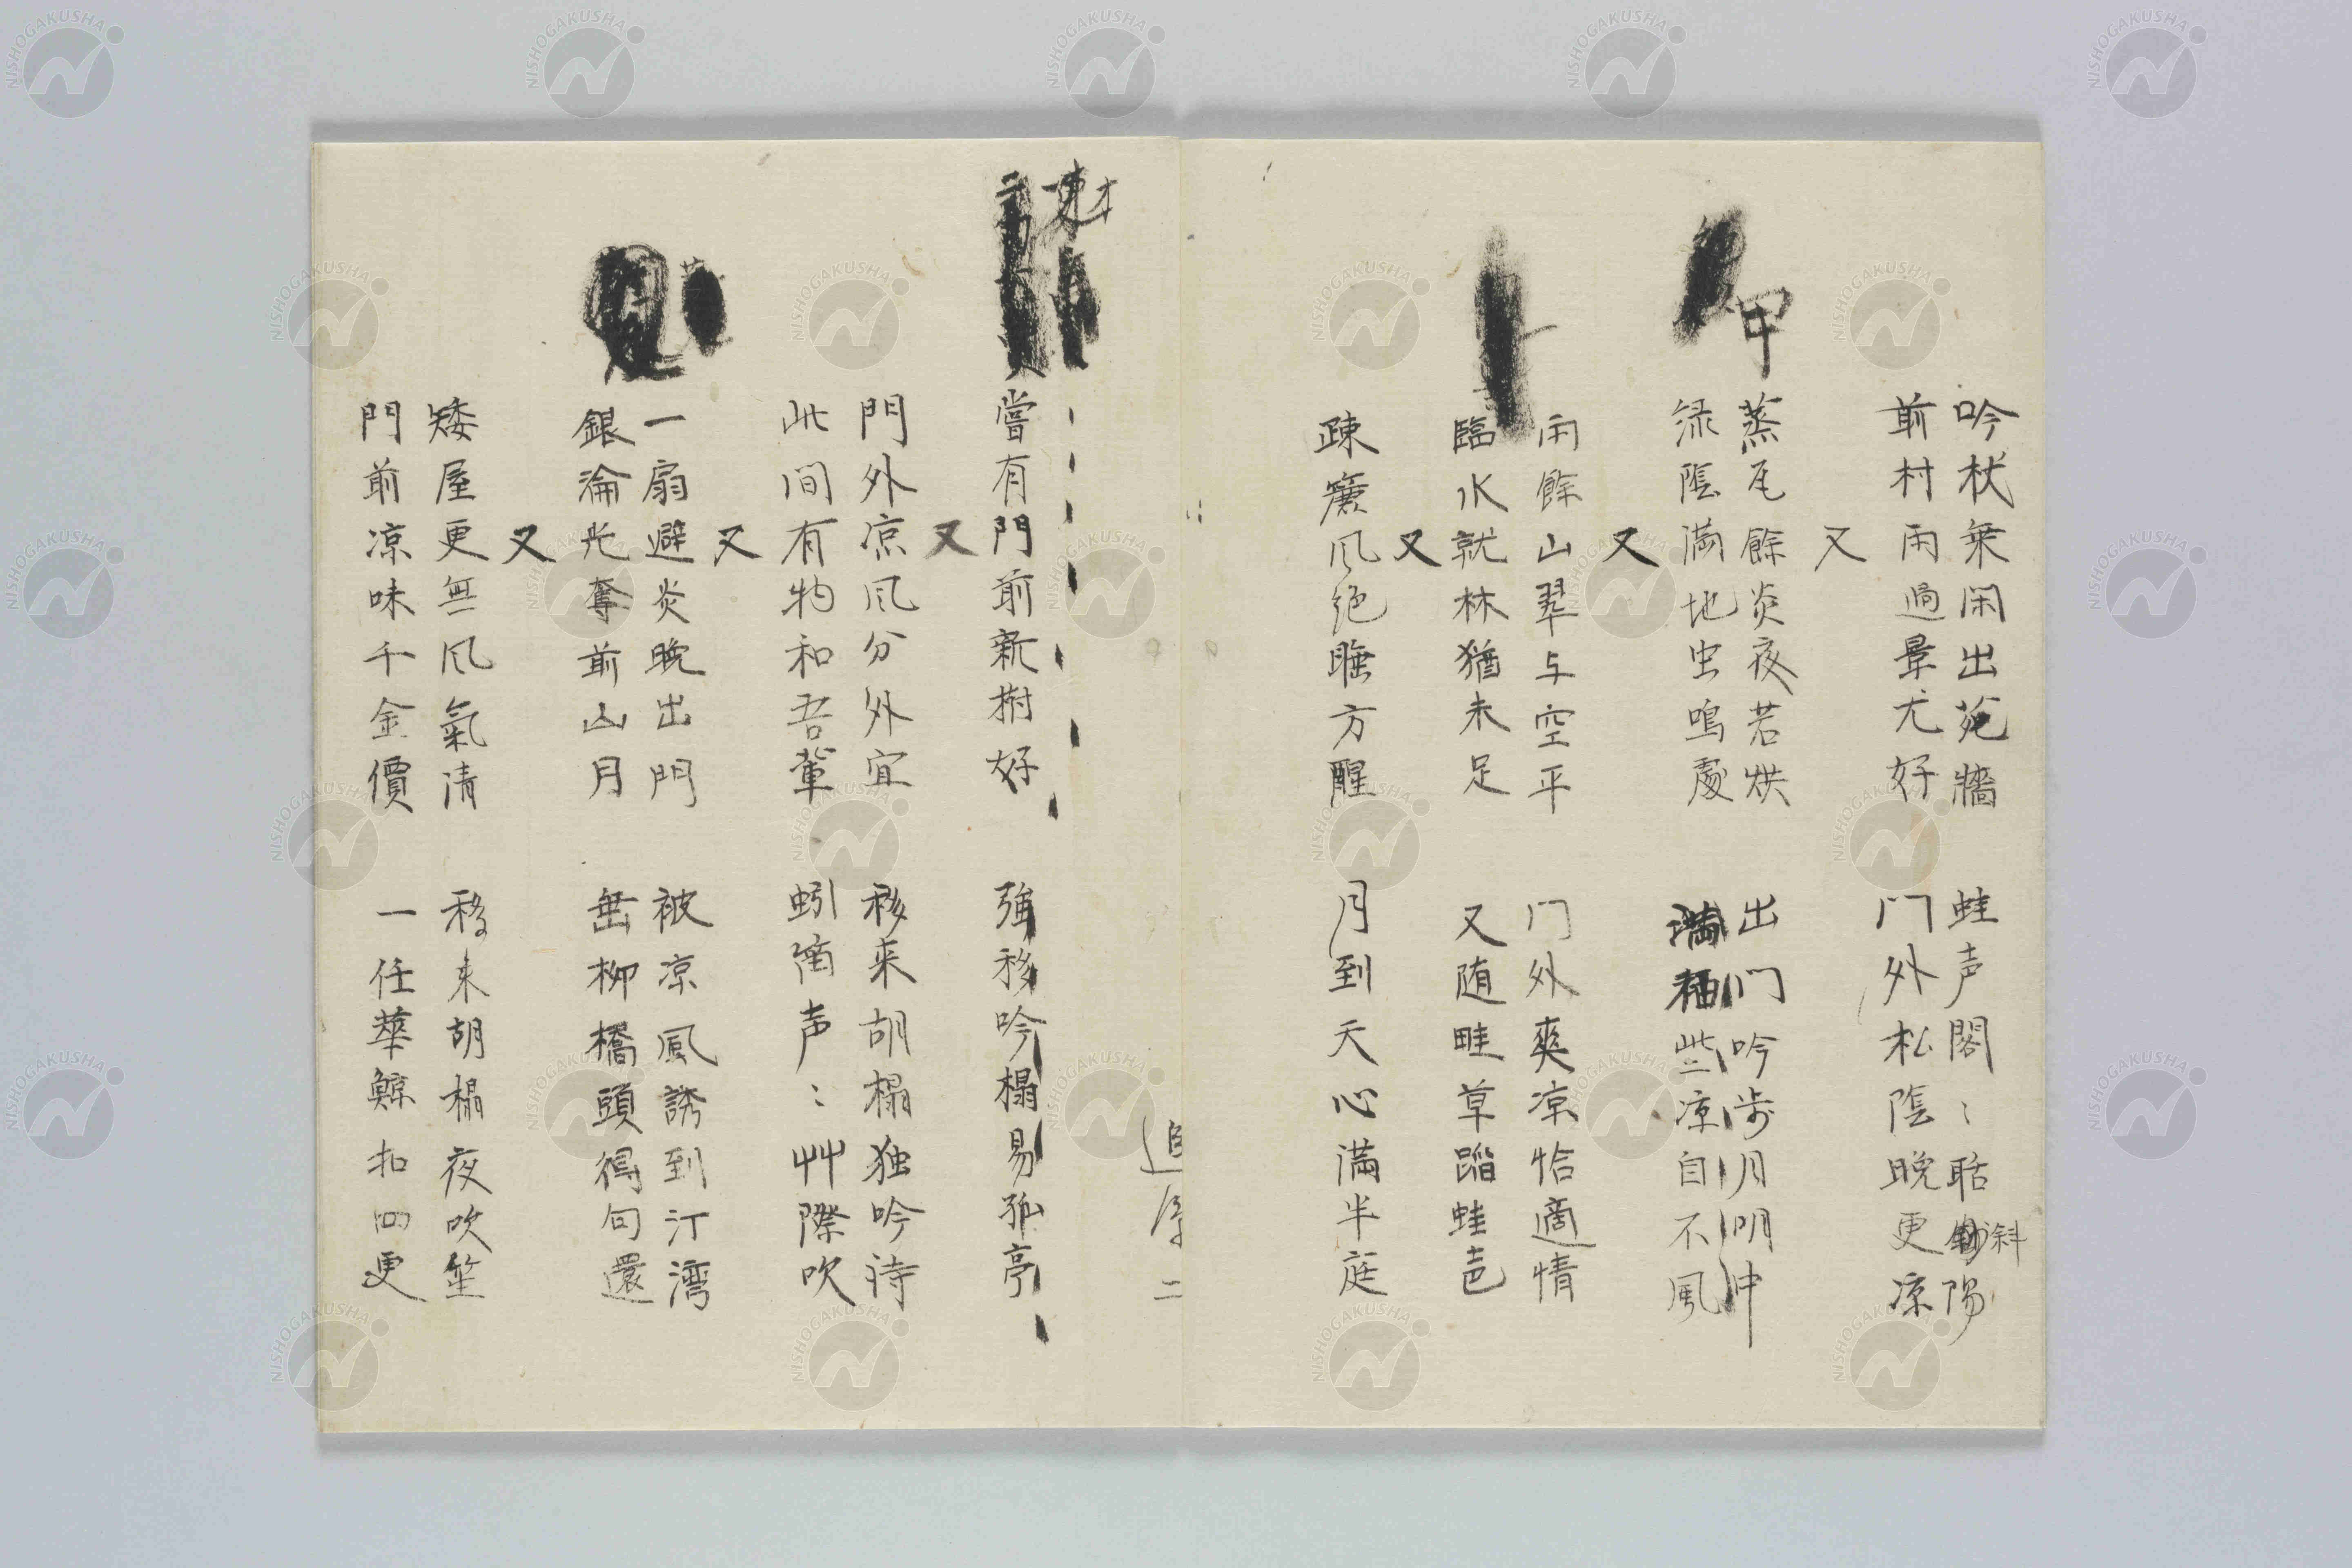 吟杖乗閑出菀牆 蛙声閣〻聒斜陽
前村雨過景尤好 门外松陰晚更凉
又
甲
蒸瓦餘炎夜若烘 出门吟歩月明中
緑陰満地虫鳴處 些凉自不風
又
雨餘山翠与空平 门外爽凉恰適情
臨水就林猶未足 又随畦草蹈蛙声
又
疎簾风絶睡方醒 月到天心満半庭
二
嘗有門前新樹好 強移吟榻易孤亭
又
門外凉风分外宜 移来胡榻独吟待
此间有物和吾輩 蚓笛声〻艸際吹
又
一扇避炎晚出門 被凉風誘到汀湾
銀淪光奪前山月 垂柳橋頭得句還
又
矮屋更無风氣清 移来胡榻夜吹笙
門前凉味千金價 一任華鯨扣四更
NISHOGAKUSHA